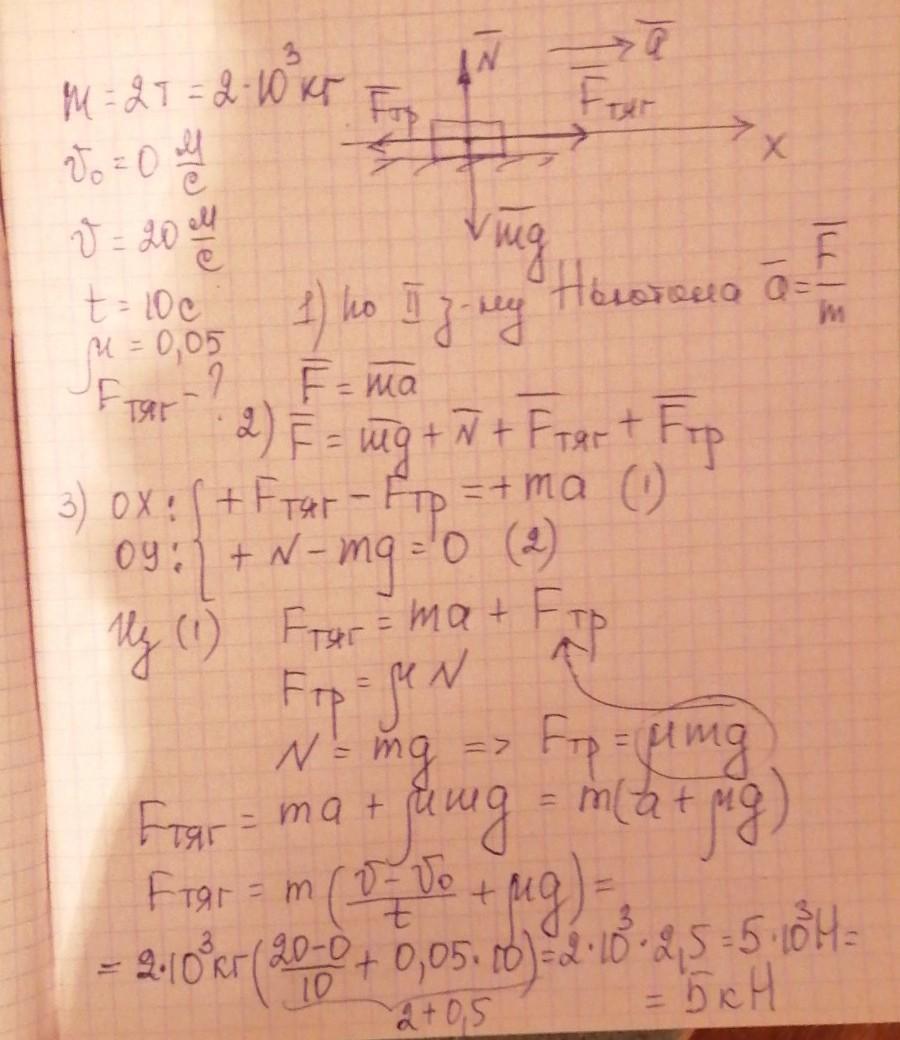 m = 2т = 2·10³ кг
N̅
a̅
F̅тр
F̅тяг
x
m̅g̅
v₀ = 0 м/с
v = 20 м/с
t = 10 с
μ = 0,05
Fтяг - ?
1) по II з-ну Ньютона a̅ = F̅/m
F̅ = m̅a̅
2) F̅ = m̅g̅ + N̅ + F̅тяг + F̅тр
3) OX: { + Fтяг - Fтр = + ma (1)
OY: { + N - mg = 0 (2)
Из (1) Fтяг = ma + Fтр
Fтр = μN
N = mg => Fтр = μmg
Fтяг = ma + μmg = m(a + μg)
Fтяг = m((v - v₀)/t + μg) =
= 2·10³ кг((20-0)/10 + 0,05·10) = 2·10³·2,5 = 5·10³ Н =
2 + 0,5
= 5 кН